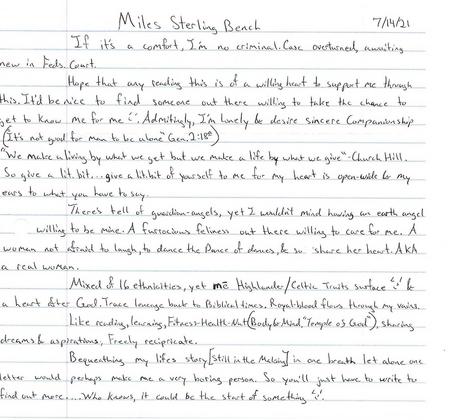 Miles Sterling Bench 7/14/21
If it's a comfort, I'm no criminal. Case overturned, awaiting
new in Feds. Court.
Hope that any reading this is of a willing heart to support me through
this. It'd be nice to find someone out there willing to take the chance to
get to know me for me :. Admitingly, I'm lonely & desire sincere Companionship
(It's not good for man to be alone" Gen. 2:18)
"We make a living by what we get but we make a life by what we give"-Church Hill.
So give a lit. bit...give a lit. bit of yourself to me for my heart is open-wide & my
ears to what you have to say.
There's tell of guardian-angels, yet I wouldn't mind having an earth angel
willing to be mine. A furocious feliness out there willing to care for me. A
woman not afraid to laugh, to dance the Dance of dances, & so share her heart. AKA
a real woman.
Mixed of 16 ethnicities, yet mē Highlander/Celtic Traits surface & 
a heart after God. Trace leneage back to Biblical times. Royal-blood flows through my vains.
Like reading, learning, Fitness-Health-Nut (Body & Mind, "Temple of God"), sharing
dreams & aspirations, Freely recipricate.
Bequeathing my lifes story [still in the Making] in one breath let alone one
letter would perhaps make me a very boring person. So you'll just have to write to
find out more.... Who knows, it could be the start of something